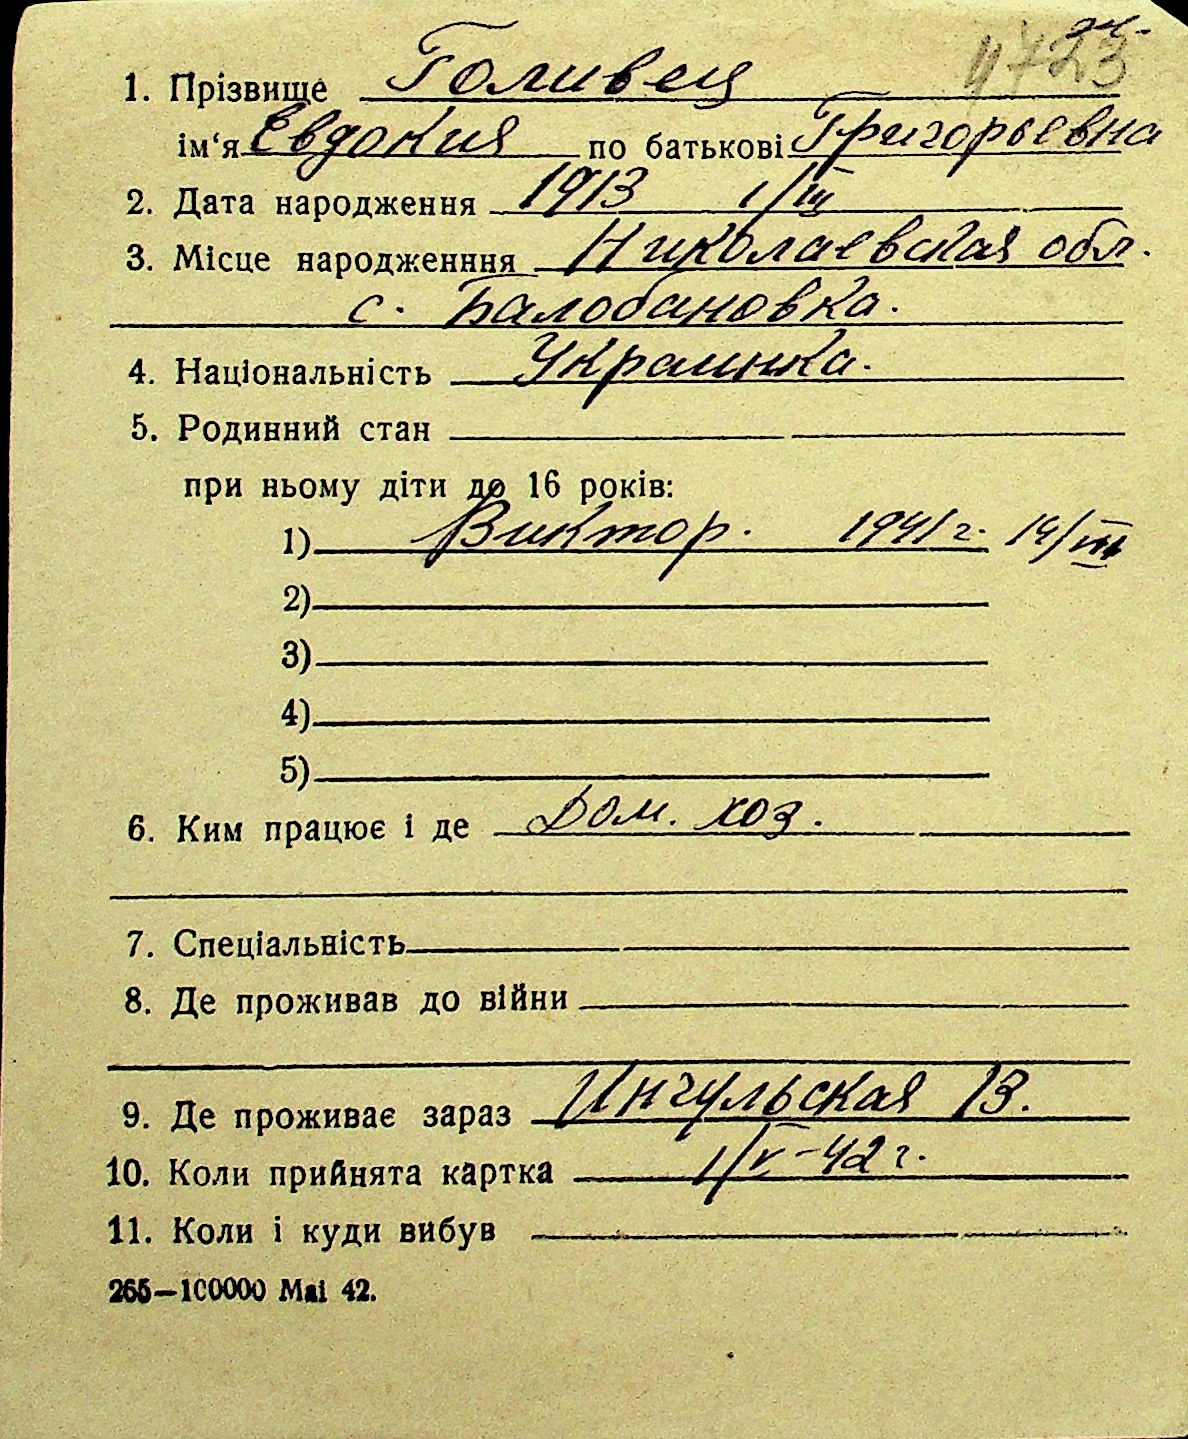 4723
1. Прізвище Голивец
ім'я Евдокия по батькові Григорьевна
2. Дата народження 1913 1/III
3. Місце народженння Николаевская обл.
с. Балобановка.
4. Національність Украинка.
5. Родинний стан
при ньому діти до 16 років:
1) Виктор. 1941 г. 14/VII
2)
3)
4)
5)
6. Ким працює і де Дом. хоз.
7. Спеціальність
8. Де проживав до війни
9. Де проживає зараз Ингульская 13.
10. Коли прийнята картка 1/V-42 г.
11. Коли і куди вибув
265—100000 Mai 42.